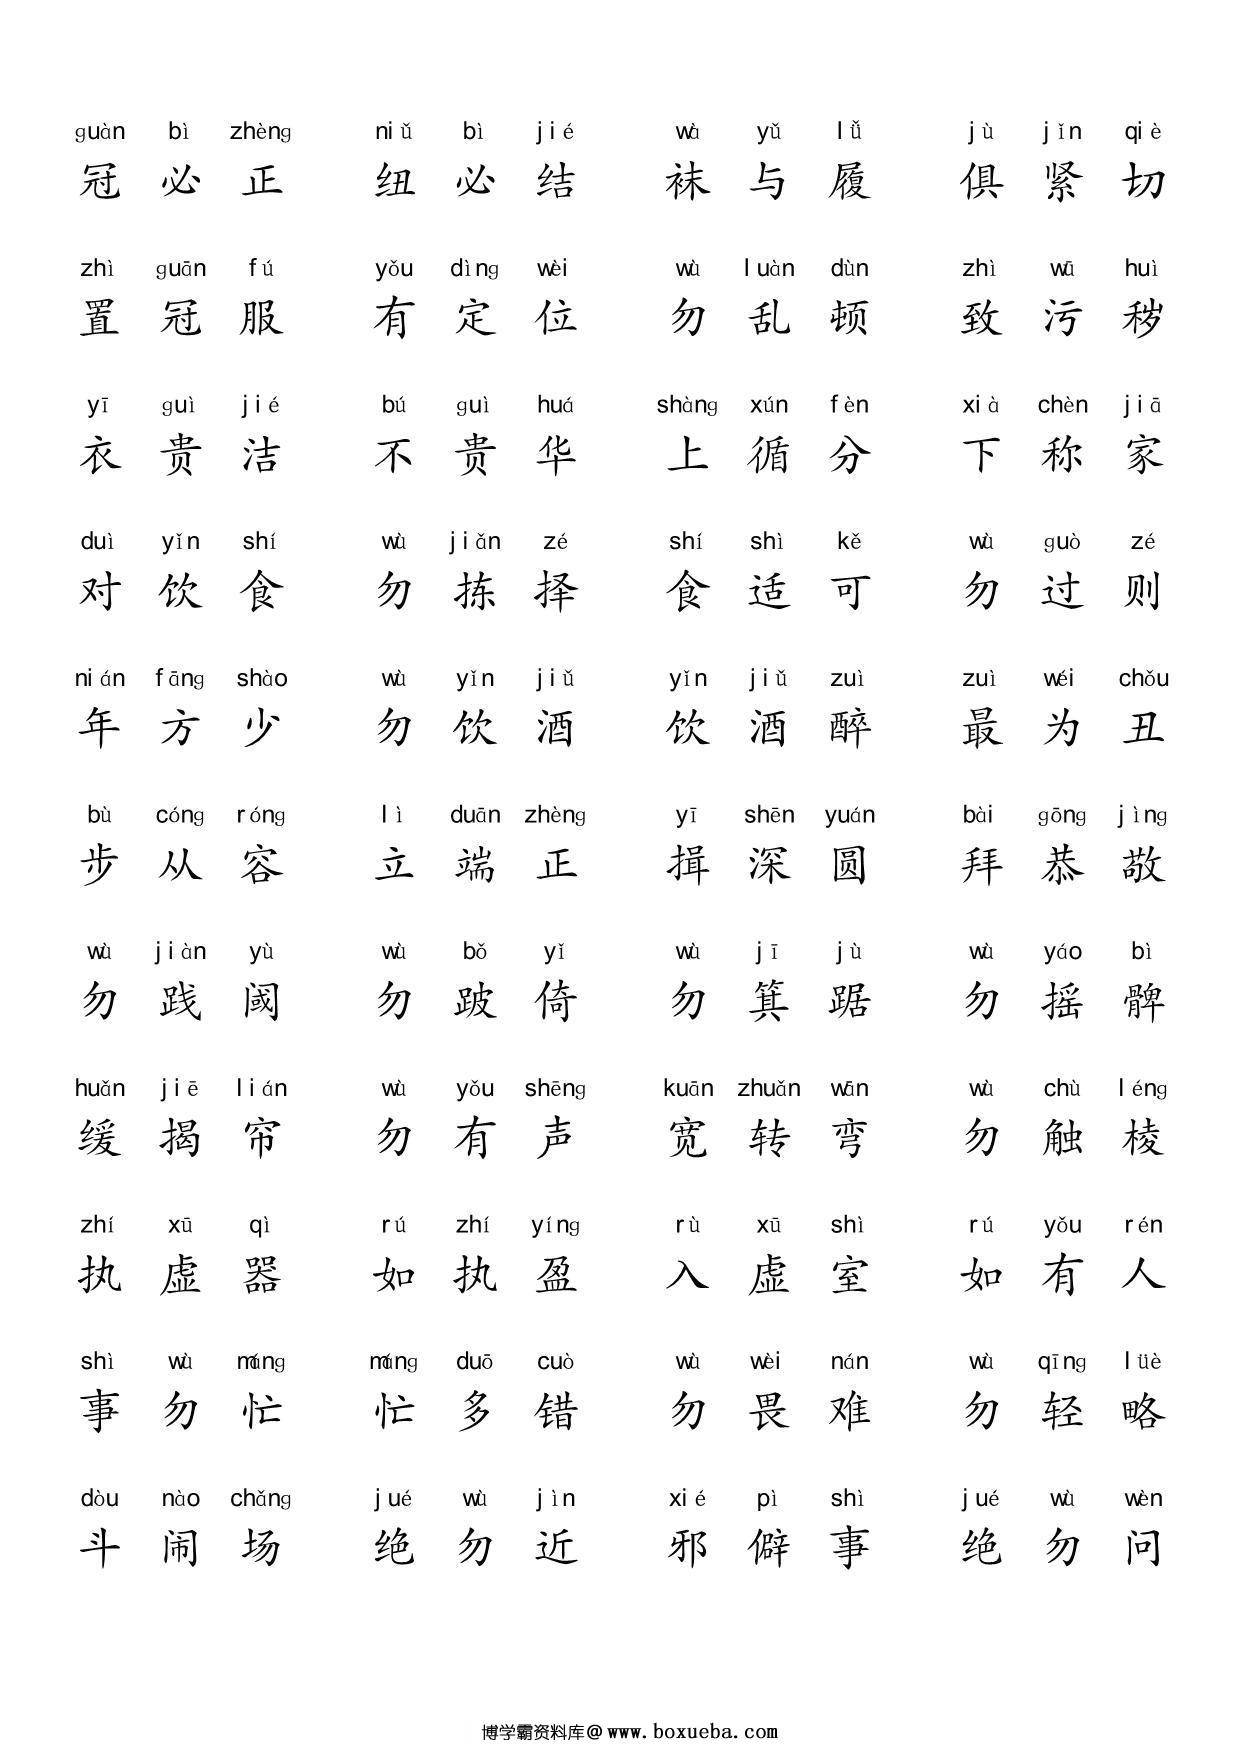 guàn bì zhèng niǔ bì jié wà yǔ lǚ jù jǐn qiè
冠必正 纽必结 袜与履 俱紧切
zhì guān fú yǒu dìng wèi wù luàn dùn zhì wū huì
置冠服 有定位 勿乱顿 致污秽
yī guì jié bú guì huá shàng xún fèn xià chèn jiā
衣贵洁 不贵华 上循分 下称家
duì yǐn shí wù jiǎn zé shí shì kě wù guò zé
对饮食 勿拣择 食适可 勿过则
nián fāng shào wù yǐn jiǔ yǐn jiǔ zuì zuì wéi chǒu
年方少 勿饮酒 饮酒醉 最为丑
bù cóng róng lì duān zhèng yī shēn yuán bài gōng jìng
步从容 立端正 揖深圆 拜恭敬
wù jiàn yù wù bǒ yǐ wù jī jù wù yáo bì
勿践阈 勿跛倚 勿箕踞 勿摇髀
huǎn jiē lián wù yǒu shēng kuān zhuǎn wān wù chù léng
缓揭帘 勿有声 宽转弯 勿触棱
zhí xū qì rú zhí yíng rù xū shì rú yǒu rén
执虚器 如执盈 入虚室 如有人
shì wù máng máng duō cuò wù wèi nán wù qīng lüè
事勿忙 忙多错 勿畏难 勿轻略
dòu nào chǎng jué wù jìn xié pì shì jué wù wèn
斗闹场 绝勿近 邪僻事 绝勿问
博学霸资料库@www.boxueba.com